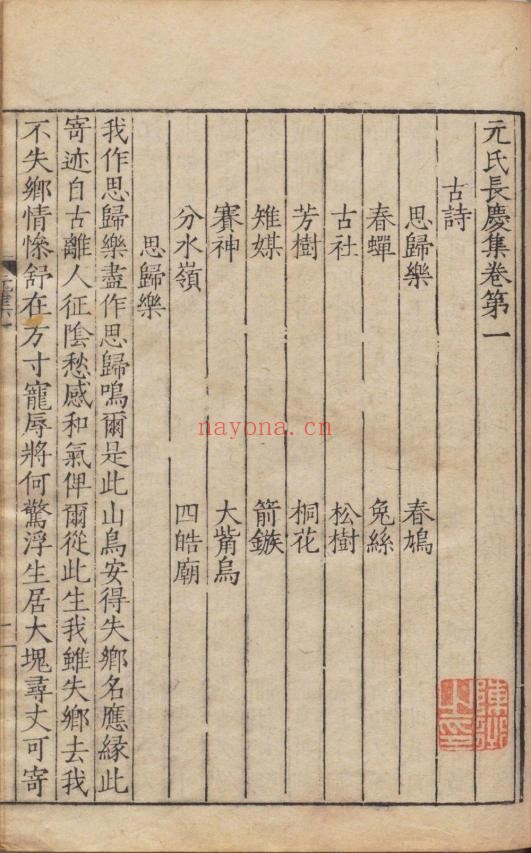 元氏長慶集卷第一
古詩
思歸樂 春鳩
春蟬 兔絲
古社 松樹
芳樹 桐花
雉媒 箭鏃
賽神 大觜烏
分水嶺 四皓廟
思歸樂
我作思歸樂盡作思歸鳴爾是此山鳥安得失鄉名應緣此
寄迹自古離人征陰愁感和氣俾爾從此生我雖失鄉去我
不失鄉情慘舒在方寸寵辱將何驚浮生居大塊尋丈可寄
nayona.cn